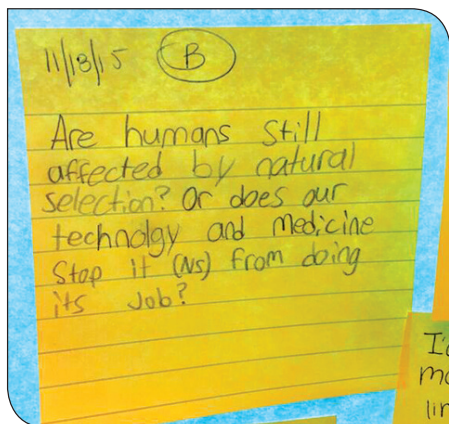 11/13/15 B
Are humans still
affected by natural
selection? Or does our
technolgy and medicine
stop it (NS) from doing
its job?